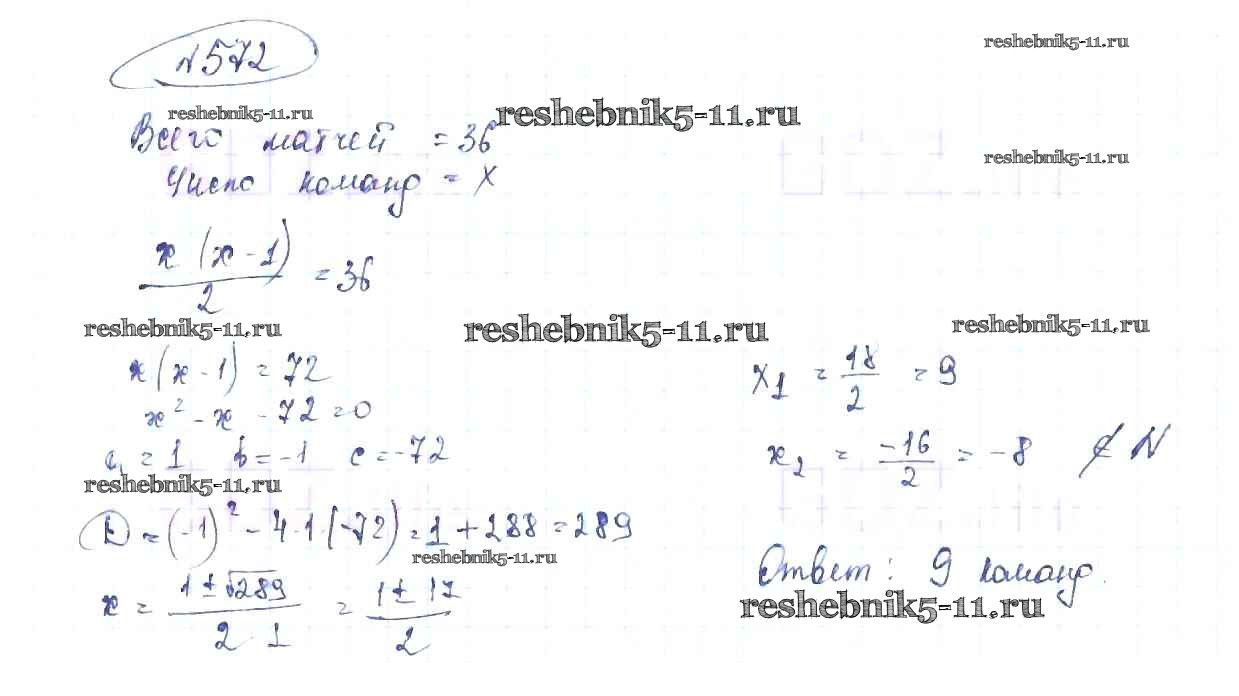 №572
reshebnik5-11.ru
reshebnik5-11.ru
reshebnik5-11.ru
Всего матчей = 36
Число команд = x
reshebnik5-11.ru
x(x-1)/2 = 36
reshebnik5-11.ru
reshebnik5-11.ru
reshebnik5-11.ru
x(x-1) = 72
x² - x - 72 = 0
a = 1 b = -1 c = -72
reshebnik5-11.ru
D = (-1)² - 4·1·(-72) = 1 + 288 = 289
reshebnik5-11.ru
x = 1±√289/2·1 = 1±17/2
x₁ = 18/2 = 9
x₂ = -16/2 = -8 ∉ N
Ответ: 9 команд.
reshebnik5-11.ru